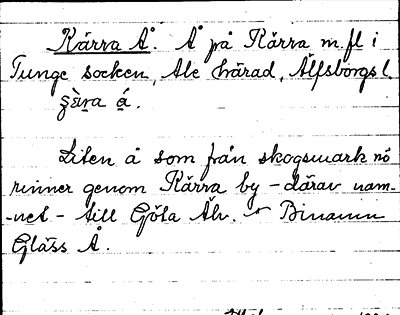 Kärra Å. Å på Kärra m. fl i
Tunge socken, Ale härad, Älfsborgs l.
Liten å som från skogsmark nö
rinner genom Kärra by - därav nam-
-net - till Göta Älv. Binamn
Gläss Å.